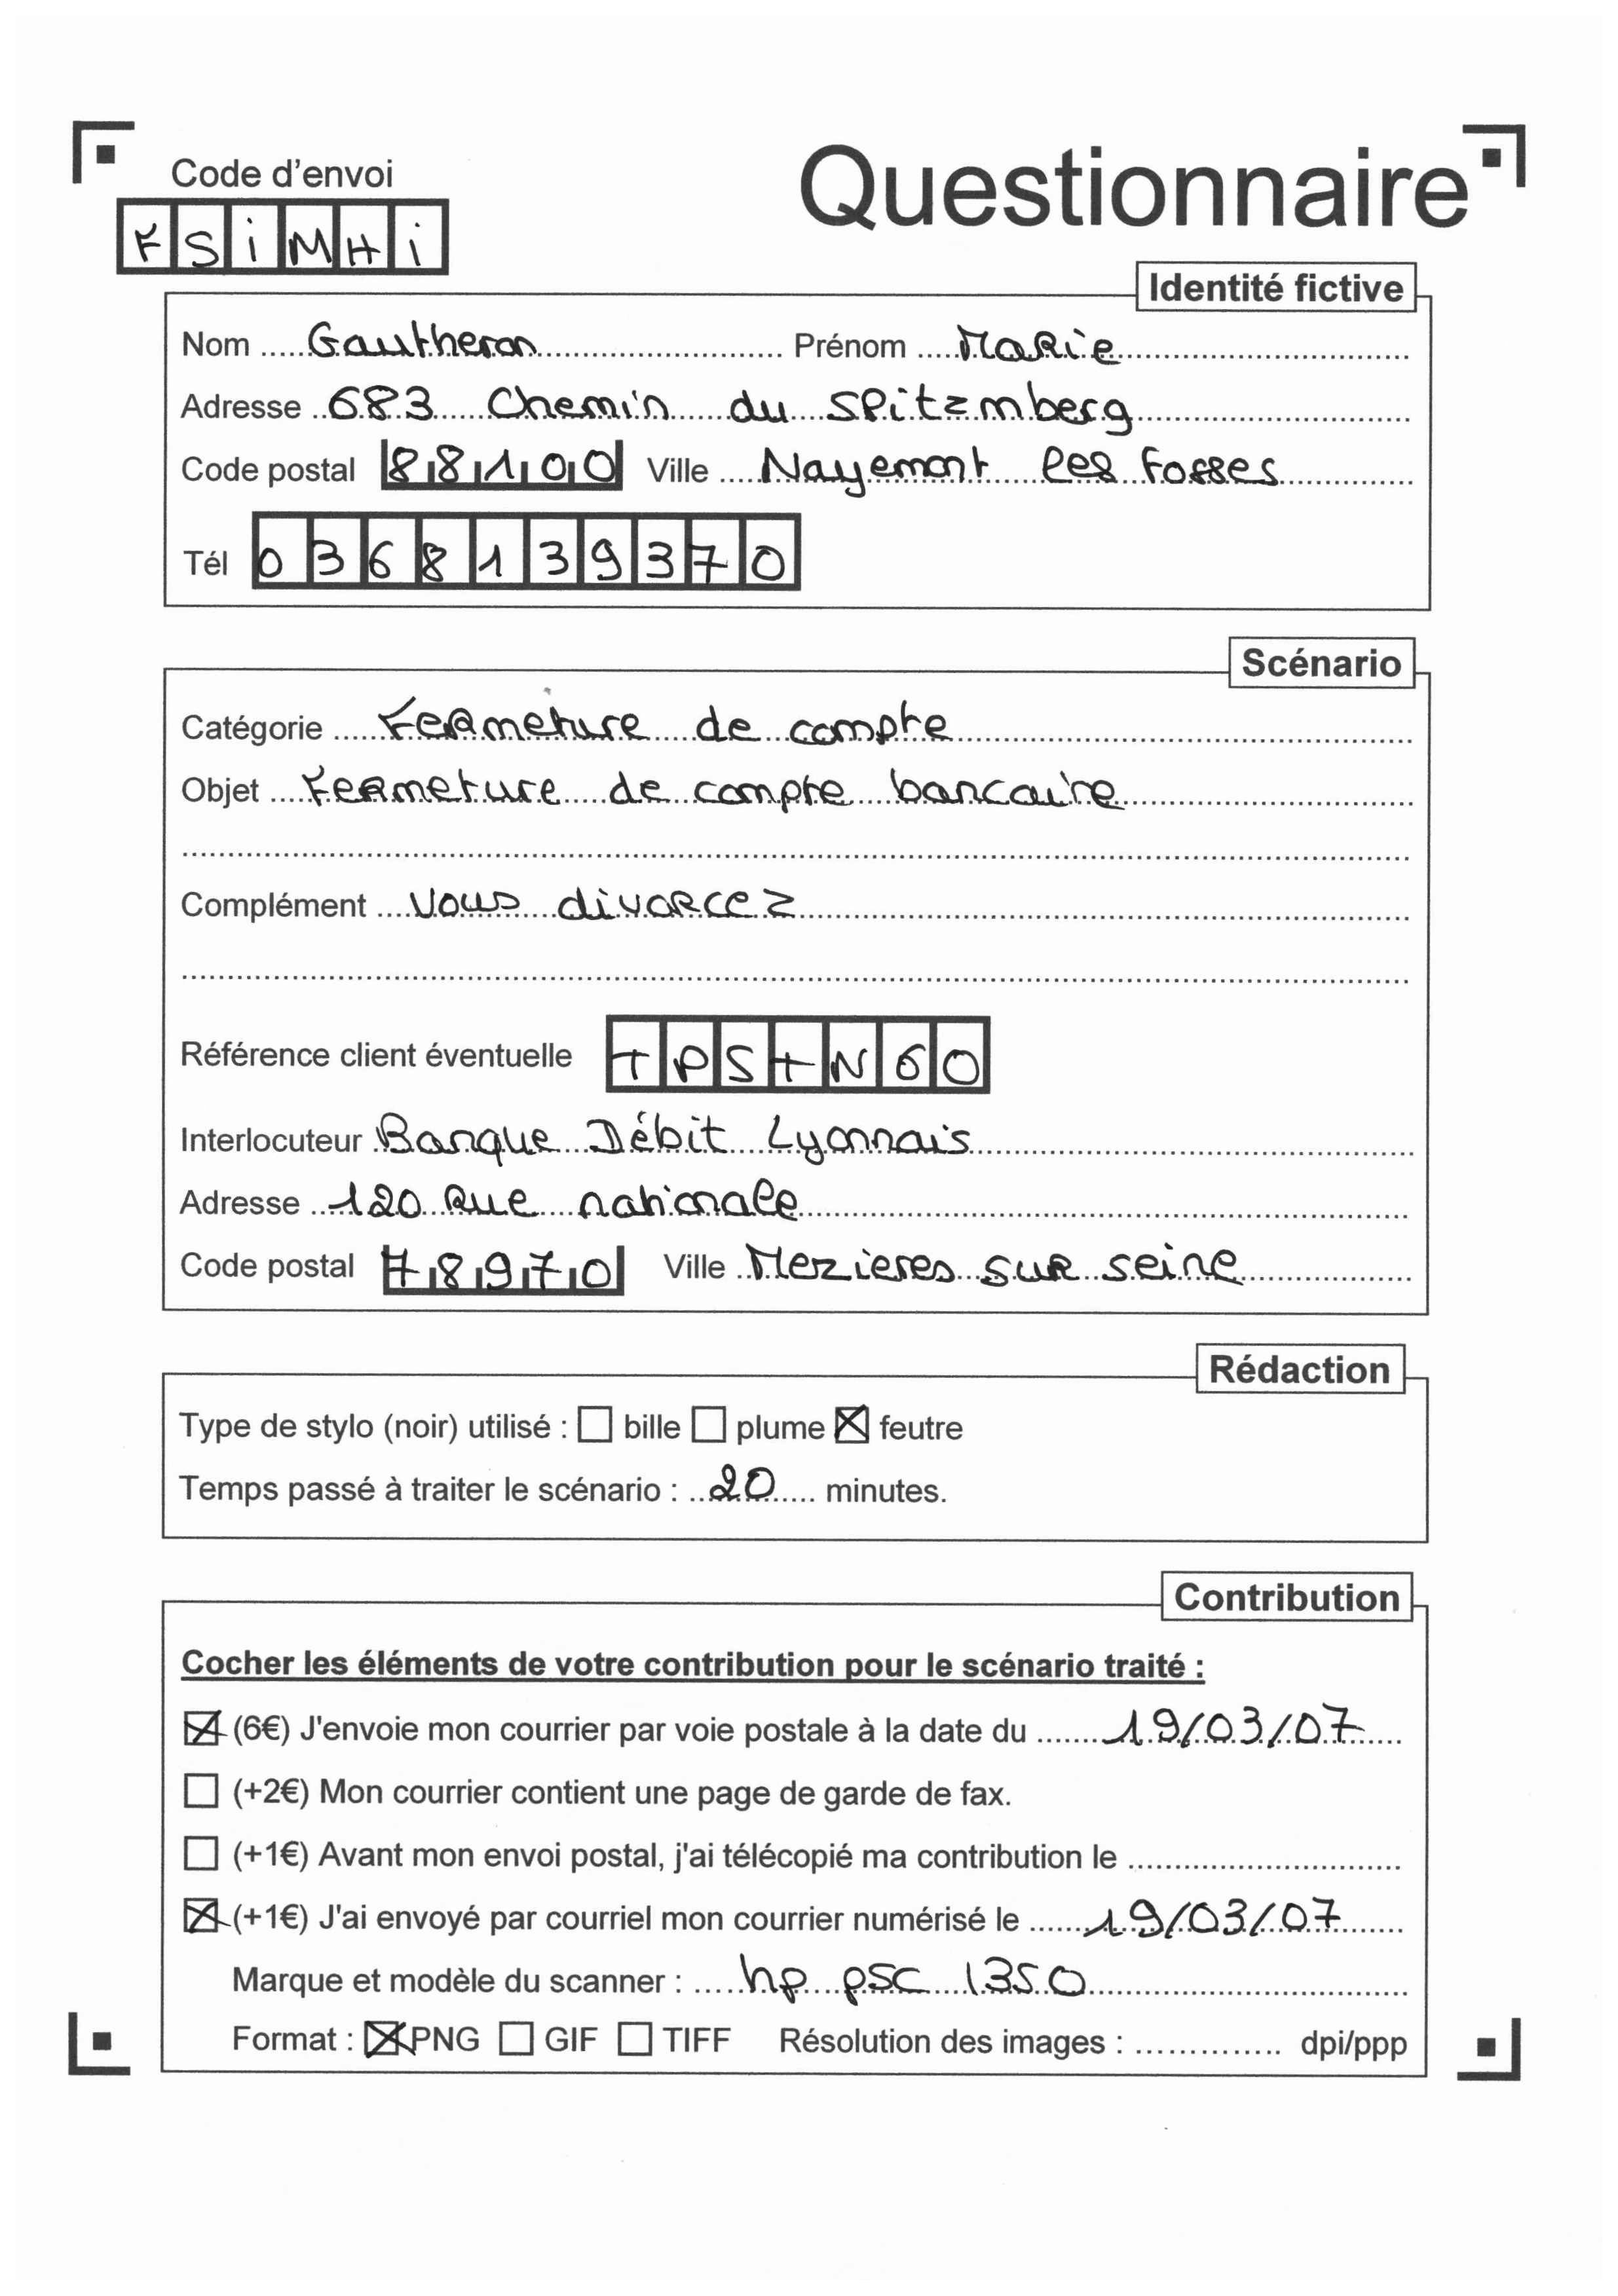 Code d'envoi
Questionnaire
FSiMHi
Identité fictive
Nom ..... Gautheron ..... Prénom ..... Marie .....
Adresse .. 683 Chemin du Spitzmberg .....
Code postal 88100 Ville .... Nayemont les Fosses .....
Tél 0368139370
Scénario
Catégorie ..... Fermeture de compte .....
Objet .... Fermeture de compte bancaire .....
Complément .... Vous divorcez .....
Référence client éventuelle TPSTN60
Interlocuteur .Banque Débit Lyonnais .....
Adresse ... 120 Rue nationale .....
Code postal 78970 Ville .. Mezieres sur seine .....
Rédaction
Type de stylo (noir) utilisé : ☐ bille ☐ plume ☒ feutre
Temps passé à traiter le scénario : .. 20 ..... minutes.
Contribution
Cocher les éléments de votre contribution pour le scénario traité :
☒ (6€) J'envoie mon courrier par voie postale à la date du ....... 19/03/07 .....
☐ (+2€) Mon courrier contient une page de garde de fax.
☐ (+1€) Avant mon envoi postal, j'ai télécopié ma contribution le ..............................
☒ (+1€) J'ai envoyé par courriel mon courrier numérisé le ....... 19/03/07 .....
Marque et modèle du scanner : ..... hp psc 1350 .....
Format : ☒ PNG ☐ GIF ☐ TIFF Résolution des images : .............. dpi/ppp